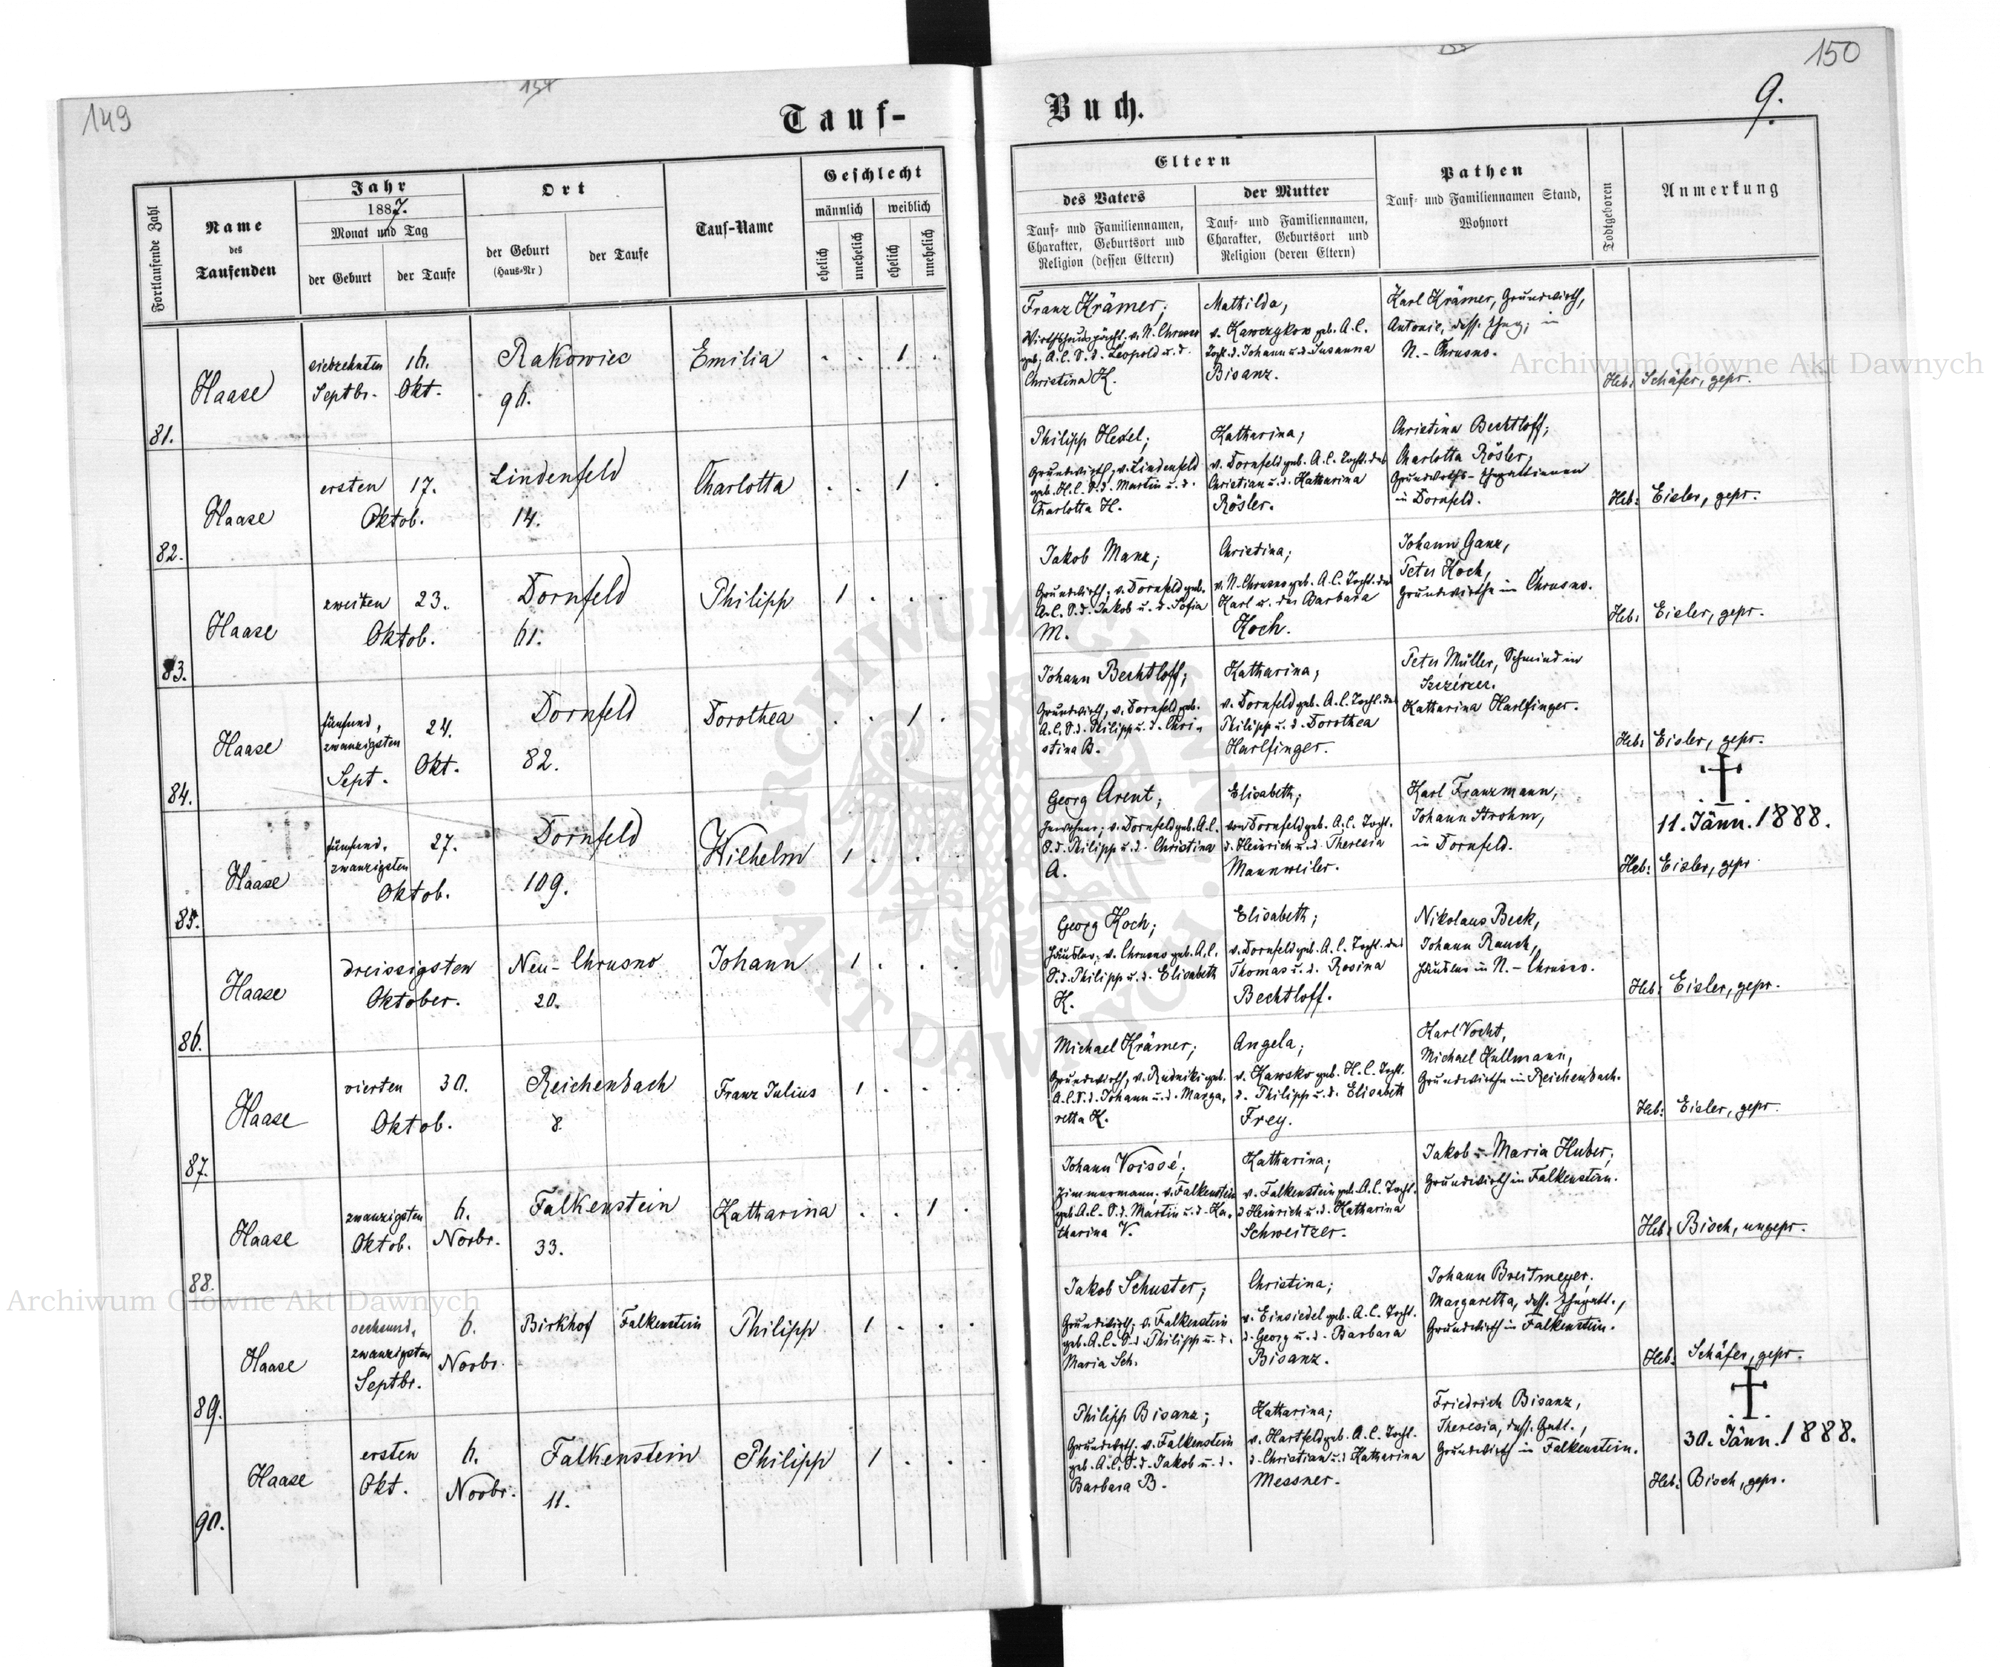 149
150
9.
Tauf-
Buch.
Fortlaufende Zahl
Name
des
Taufenden
Jahr
1887.
Monat und Tag
der Geburt
der Taufe
Ort
der Geburt
(Haus-Nr)
der Taufe
Tauf-Name
Geschlecht
männlich
weiblich
ehelich
unehelich
ehelich
unehelich
Eltern
des Vaters
Tauf- und Familiennamen,
Charakter, Geburtsort und
Religion (dessen Eltern)
der Mutter
Tauf- und Familiennamen,
Charakter, Geburtsort und
Religion (deren Eltern)
Pathen
Tauf- und Familiennamen Stand,
Wohnort
Todtgeboren
Anmerkung
81.
Haase
siebzehnten
Septbr.
16.
Okt.
Rakowiec
96.
Emilia
1
Franz Krämer;
geb. A.C. S.d. Leopold u. d.
Christina K.
Mathilda,
v. Kawczykow geb. A.C.
Tocht. d. Johann u. d. Susanna
Bisanz.
Karl Krämer, Grundwirth,
Antonie, dess. Eheg. in
N.-Chrusno.
Heb: Schäfer, gepr.
82.
Haase
ersten
Oktob.
17.
Lindenfeld
14.
Charlotta
1
Philipp Hexel;
Grundwirth, v. Lindenfeld
geb. H.C. S.d. Martin u. d.
Charlotta H.
Katharina,
v. Dornfeld geb. A.C. Tocht. des
Christian u. d. Katharina
Rösler.
Christina Bechtloff;
Charlotta Rösler,
Grundwirths-Ehegattinnen
in Dornfeld.
Heb: Eisler, gepr.
83.
Haase
zweiten
Oktob.
23.
Dornfeld
61.
Philipp
1
Jakob Manz;
Grundwirth, v. Dornfeld geb.
A.C. S.d. Jakob u. d. Sofia
M.
Christina;
v. N-Chrusno geb. A.C. Tocht. des
Karl u. der Barbara
Koch.
Johann Ganz,
Peter Koch,
Grundwirthe in Chrusno.
Heb: Eisler, gepr.
84.
Haase
fünfund,
zwanzigsten
Sept.
24.
Okt.
Dornfeld
82.
Dorothea
1
Johann Bechtloff;
Grundwirth, v. Dornfeld geb.
A.C. S.d. Philipp u. d. Chri-
stina B.
Katharina,
v. Dornfeld geb. A.C. Tocht. des
Philipp u. d. Dorothea
Harlfinger.
Peter Müller, Schmied in
Szczérzec.
Katharina Harlfinger.
Heb: Eisler, gepr.
85.
Haase
fünfund,
zwanzigsten
Oktob.
27.
Dornfeld
109.
Wilhelm
1
Georg Arent;
v. Dornfeld geb. A.C.
S.d. Philipp u. d. Christina
A.
Elisabeth;
von Dornfeld geb. A.C. Tocht.
d. Heinrich u. d. Theresia
Mannweiler.
Karl Franzmann,
Johann Strohm,
in Dornfeld.
11. Jänn. 1888.
Heb: Eisler, gepr
86.
Haase
dreissigsten
Oktober.
Neu-Chrusno
20.
Johann
1
Georg Koch;
Häusler, v. Chrusno geb. A.C.
S.d. Philipp u. d. Elisabeth
K.
Elisabeth;
v. Dornfeld geb. A.C. Tocht. des
Thomas u. d. Rosina
Bechtloff.
Nikolaus Beck,
Johann Rauch,
Häusler in N.-Chrusno.
Heb: Eisler, gepr.
87.
Haase
vierten
Oktob.
30.
Reichenbach
8
Franz Julius
1
Michael Krämer;
Grundwirth, v. Rudniki geb.
A.C. S.d. Johann u. d. Marga,
retta K.
Angela;
v. Kawsko geb. H.C. Tocht.
d. Philipp u. d. Elisabeth
Frey.
Karl Vocht,
Michael Kullmann,
Grundwirthe in Reichenbach.
Heb: Eisler, gepr.
88.
Haase
zwanzigsten
Oktob.
6.
Novbr.
Falkenstein
33.
Katharina
1
Johann Voissé;
Zimmermann, v. Falkenstein
geb. A.C. S.d. Martin u. d. Ka,
tharina V.
Katharina;
v. Falkenstein geb. A.C. Tocht.
d Heinrich u. d. Katharina
Schweitzer.
Jakob u. Maria Huber,
Grundwirth in Falkenstein.
Heb: Bisch, ungepr.
89.
Haase
sechsund,
zwanzigsten
Septbr.
6.
Novbr.
Birkhof
Falkenstein
Philipp
1
Jakob Schuster;
Grundwirth, v. Falkenstein
geb. A.C. S.d. Philipp u. d.
Maria Sch.
Christina;
v. Einsiedel geb. A.C. Tocht.
d. Georg u. d. Barbara
Bisanz.
Johann Breitmeyer,
Margaretha, dess. Ehegatt.,
Grundwirth in Falkenstein.
Heb: Schäfer, gepr.
90.
Haase
ersten
Okt.
6.
Novbr.
Falkenstein
11.
Philipp
1
Philipp Bisanz;
Grundwth. v. Falkenstein
geb. A.C. S.d. Jakob u. d.
Barbara B.
Katharina;
v. Hartfeld geb. A.C. Tocht.
d. Christian u. d Katharina
Messner.
Friedrich Bisanz,
Theresia, dess. Gatt.,
Grundwirth in Falkenstein.
30. Jänn. 1888.
Heb: Bisch, gepr.
Archiwum Główne Akt Dawnych
Archiwum Główne Akt Dawnych